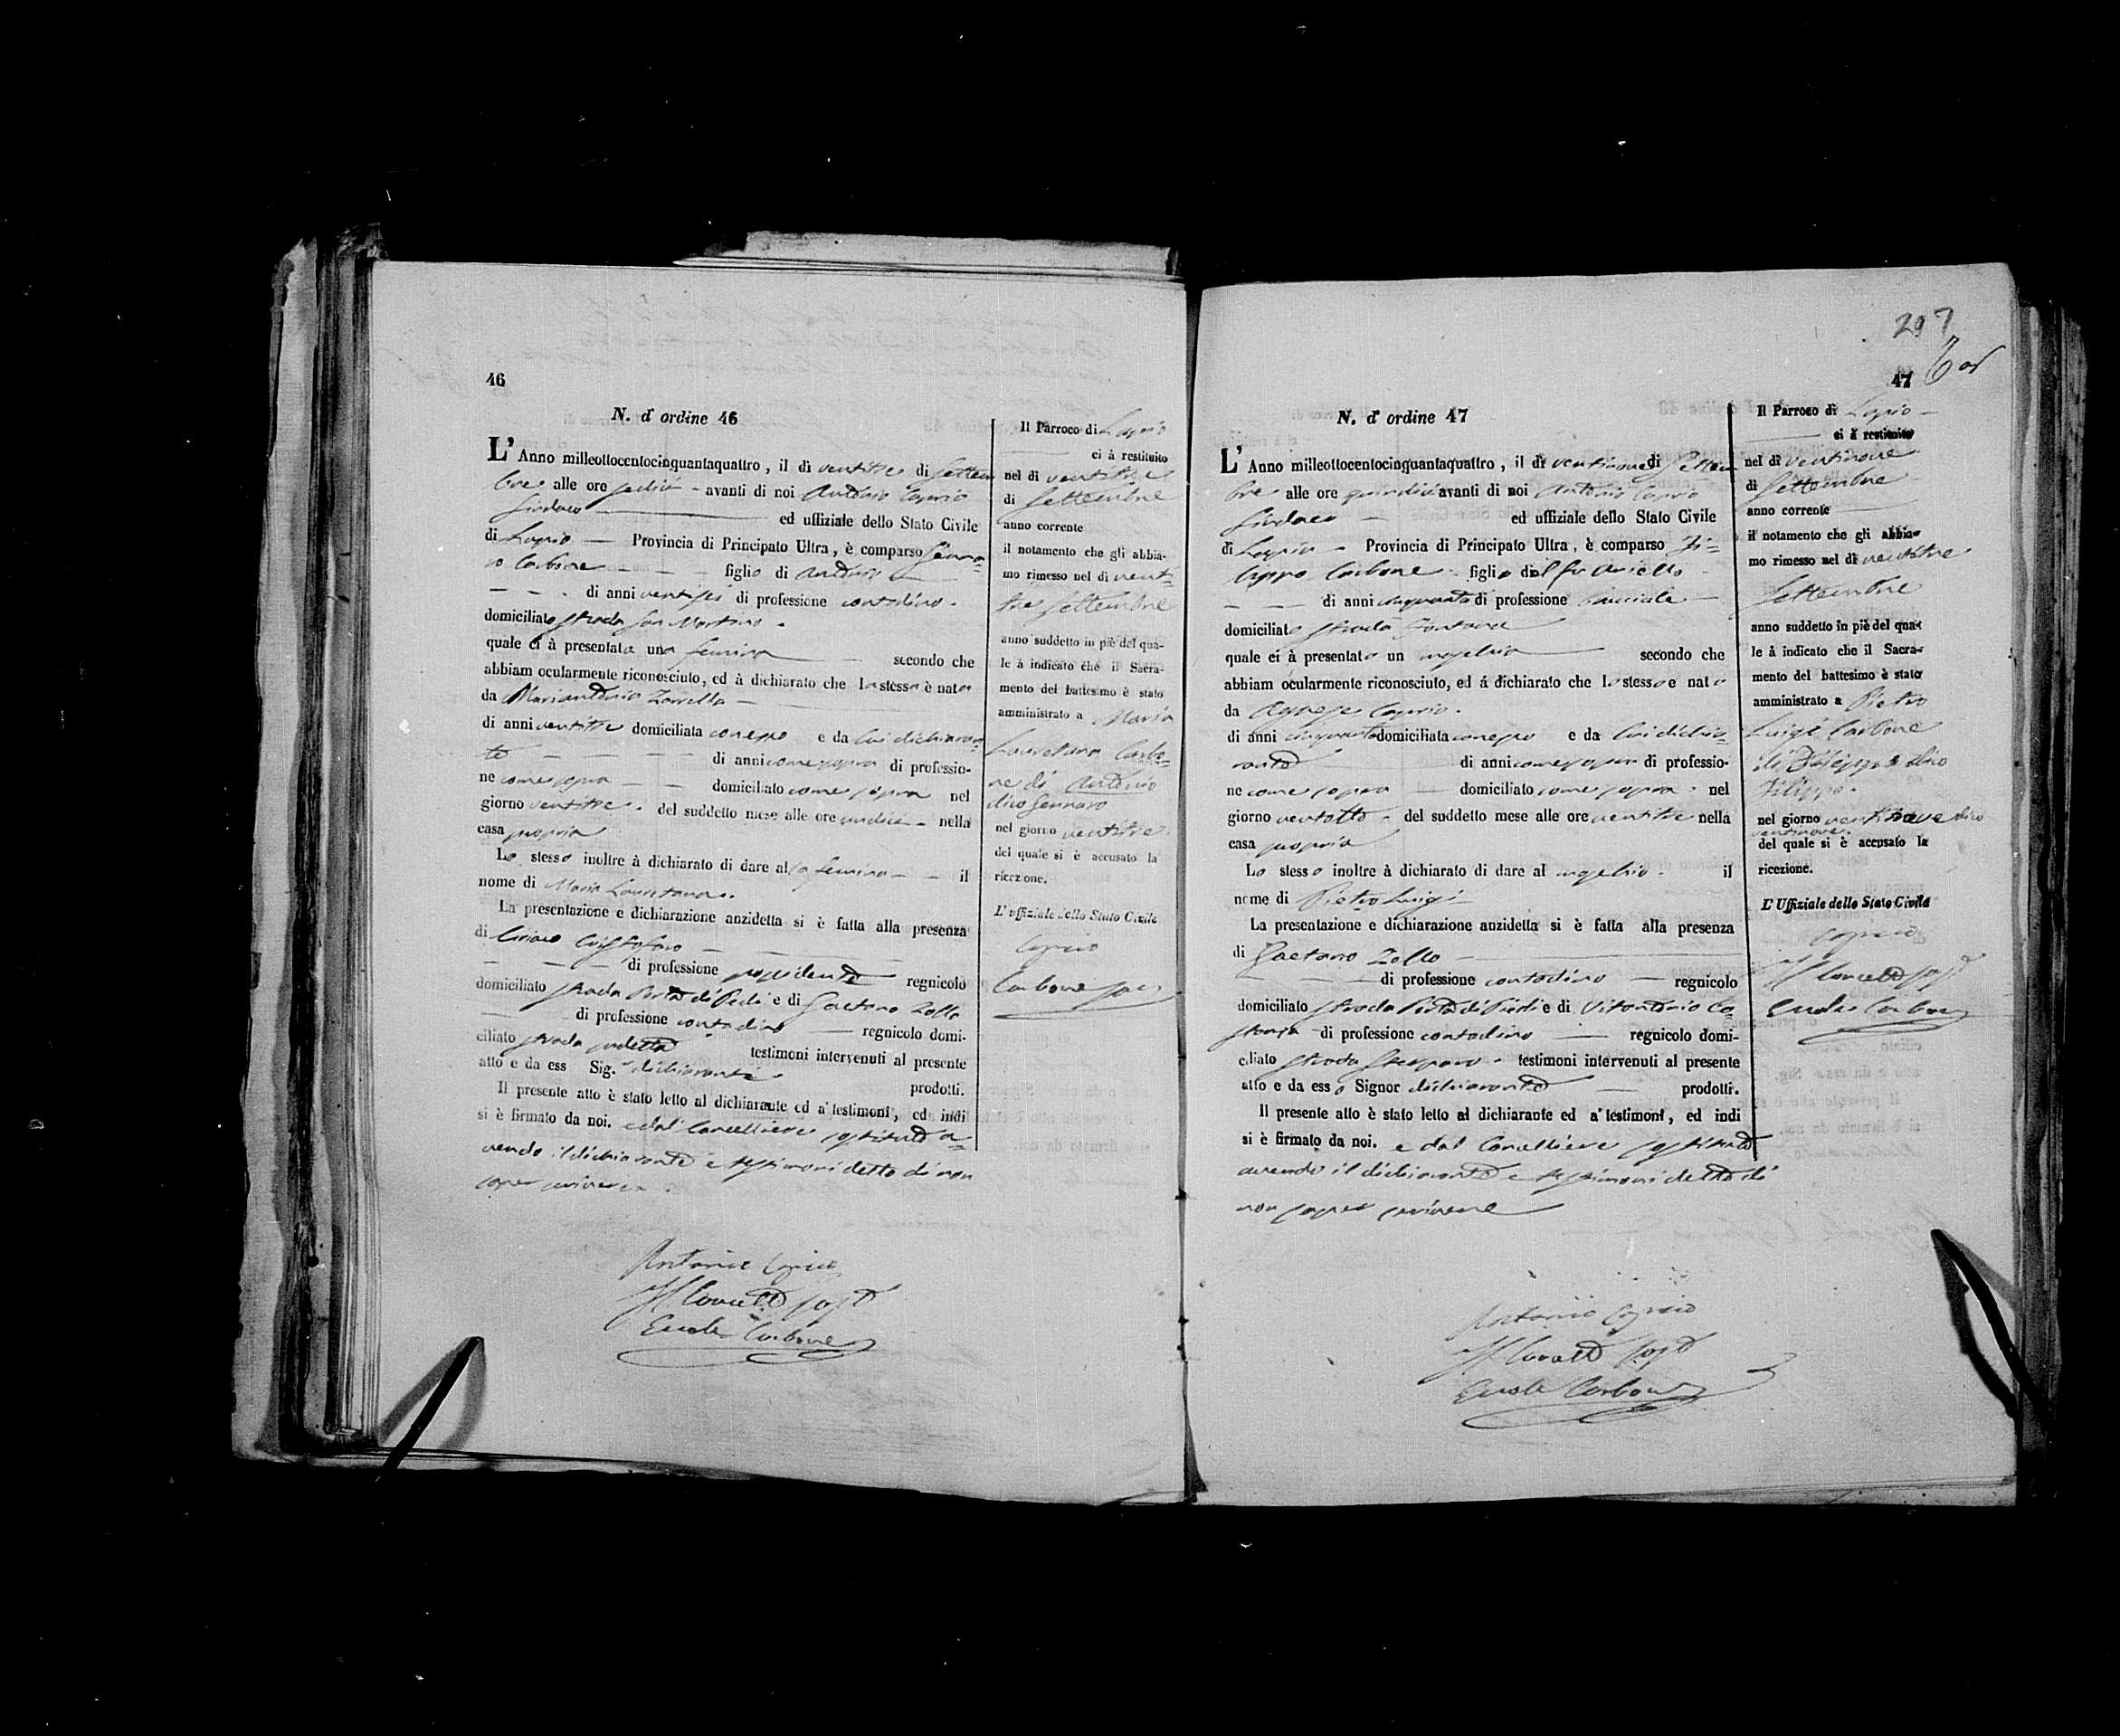 46
N. d' ordine 46
L' Anno milleottocentocinquantaquattro, il dì ventitre di Settem
bre alle ore sedici avanti di noi Antonio Caprio
Sindaco ed uffiziale dello Stato Civile
di Lapio Provincia di Principato Ultra, è comparso Genna=
ro Carbone figlio di Antonio
di anni ventisei di professione contadino
domiciliato strada San Martino
quale ci à presentata una femina secondo che
abbiam ocularmente riconosciuto, ed à dichiarato che la stessa è nata
da Mariantonia Zarrella
di anni ventitre domiciliata con esso e da lui dichiaran
te di anni come sopra di professio-
ne come sopra domiciliato come sopra nel
giorno ventitre del suddetto mese alle ore undici nella
casa propria
Lo stesso inoltre à dichiarato di dare alla femina il
nome di Maria Lauretana
La presentazione e dichiarazione anzidetta si è fatta alla presenza
di Ciriaco Cristofaro
di professione possidente regnicolo
domiciliato strada Porta di Piedi e di Gaetano Zollo
di professione contadino regnicolo domi-
ciliato strada sudetta testimoni intervenuti al presente
atto e da ess Sig. dichiarante prodotti.
Il presente atto è stato letto al dichiarante ed a' testimoni, ed indi
si è firmato da noi. e dal Cancelliere sostituto a=
vendo il dichiarante e testimoni detto di non
saper scrivere
Antonio Caprio
Il Cancell. sost.
Carbone
Il Parroco di Lapio
ci à restituito
nel dì ventitre
di Settembre
anno corrente
il notamento che gli abbia-
mo rimesso nel dì venti=
tre Settembre
anno suddetto in piè del qua-
le à indicato che il Sacra-
mento del battesimo è stato
amministrato a Maria
Lauretana Carbo=
ne di Antonio
dico Gennaro
nel giorno ventitre
del quale si è accusato la
ricezione.
L' uffiziale dello Stato Civile
Caprio
Carbone
297
47
N. d' ordine 47
L' Anno milleottocentocinquantaquattro, il dì ventinove di Settem
bre alle ore quindici avanti di noi Antonio Caprio
Sindaco ed uffiziale dello Stato Civile
di Lapio Provincia di Principato Ultra, è comparso Fi=
lippo Carbone figlio del fu Aniello
di anni cinquanta di professione
domiciliato strada Fontana
quale ci à presentato un maschio secondo che
abbiam ocularmente riconosciuto, ed à dichiarato che lo stesso è nato
da Agnese Caprio
di anni cinquanta domiciliata con esso e da lui dichia=
rante di anni come sopra di professio-
ne come sopra domiciliato come sopra nel
giorno ventotto del suddetto mese alle ore ventitre nella
casa propria
Lo stesso inoltre à dichiarato di dare al maschio il
nome di Pietro Luigi
La presentazione e dichiarazione anzidetta si è fatta alla presenza
di Gaetano Zollo
di professione contadino regnicolo
domiciliato strada Porta di Piedi e di Vitantonio Co=
stanza di professione contadino regnicolo domi-
ciliato strada testimoni intervenuti al presente
atto e da esso Signor dichiarante prodotti.
Il presente atto è stato letto al dichiarante ed a' testimoni, ed indi
si è firmato da noi. e dal Cancelliere sostituto
avendo il dichiarante e testimoni detto di
non saper scrivere
Antonio Caprio
Il Cancell. sost.
Carbone
Il Parroco di Lapio
ci à restituito
nel dì ventinove
di Settembre
anno corrente
il notamento che gli abbia-
mo rimesso nel dì ventitre
Settembre
anno suddetto in piè del qua-
le à indicato che il Sacra-
mento del battesimo è stato
amministrato a Pietro
Luigi Carbone
di dico
Filippo
nel giorno dico
ventinove
del quale si è accusato la
ricezione.
L' Uffiziale dello Stato Civile
Caprio
Il Cancell. sost.
Carbone